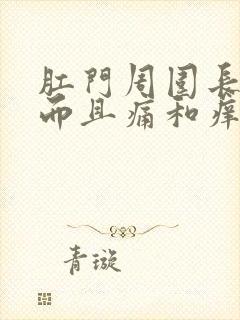 肛門周圍長
而且痛和痒
青璇